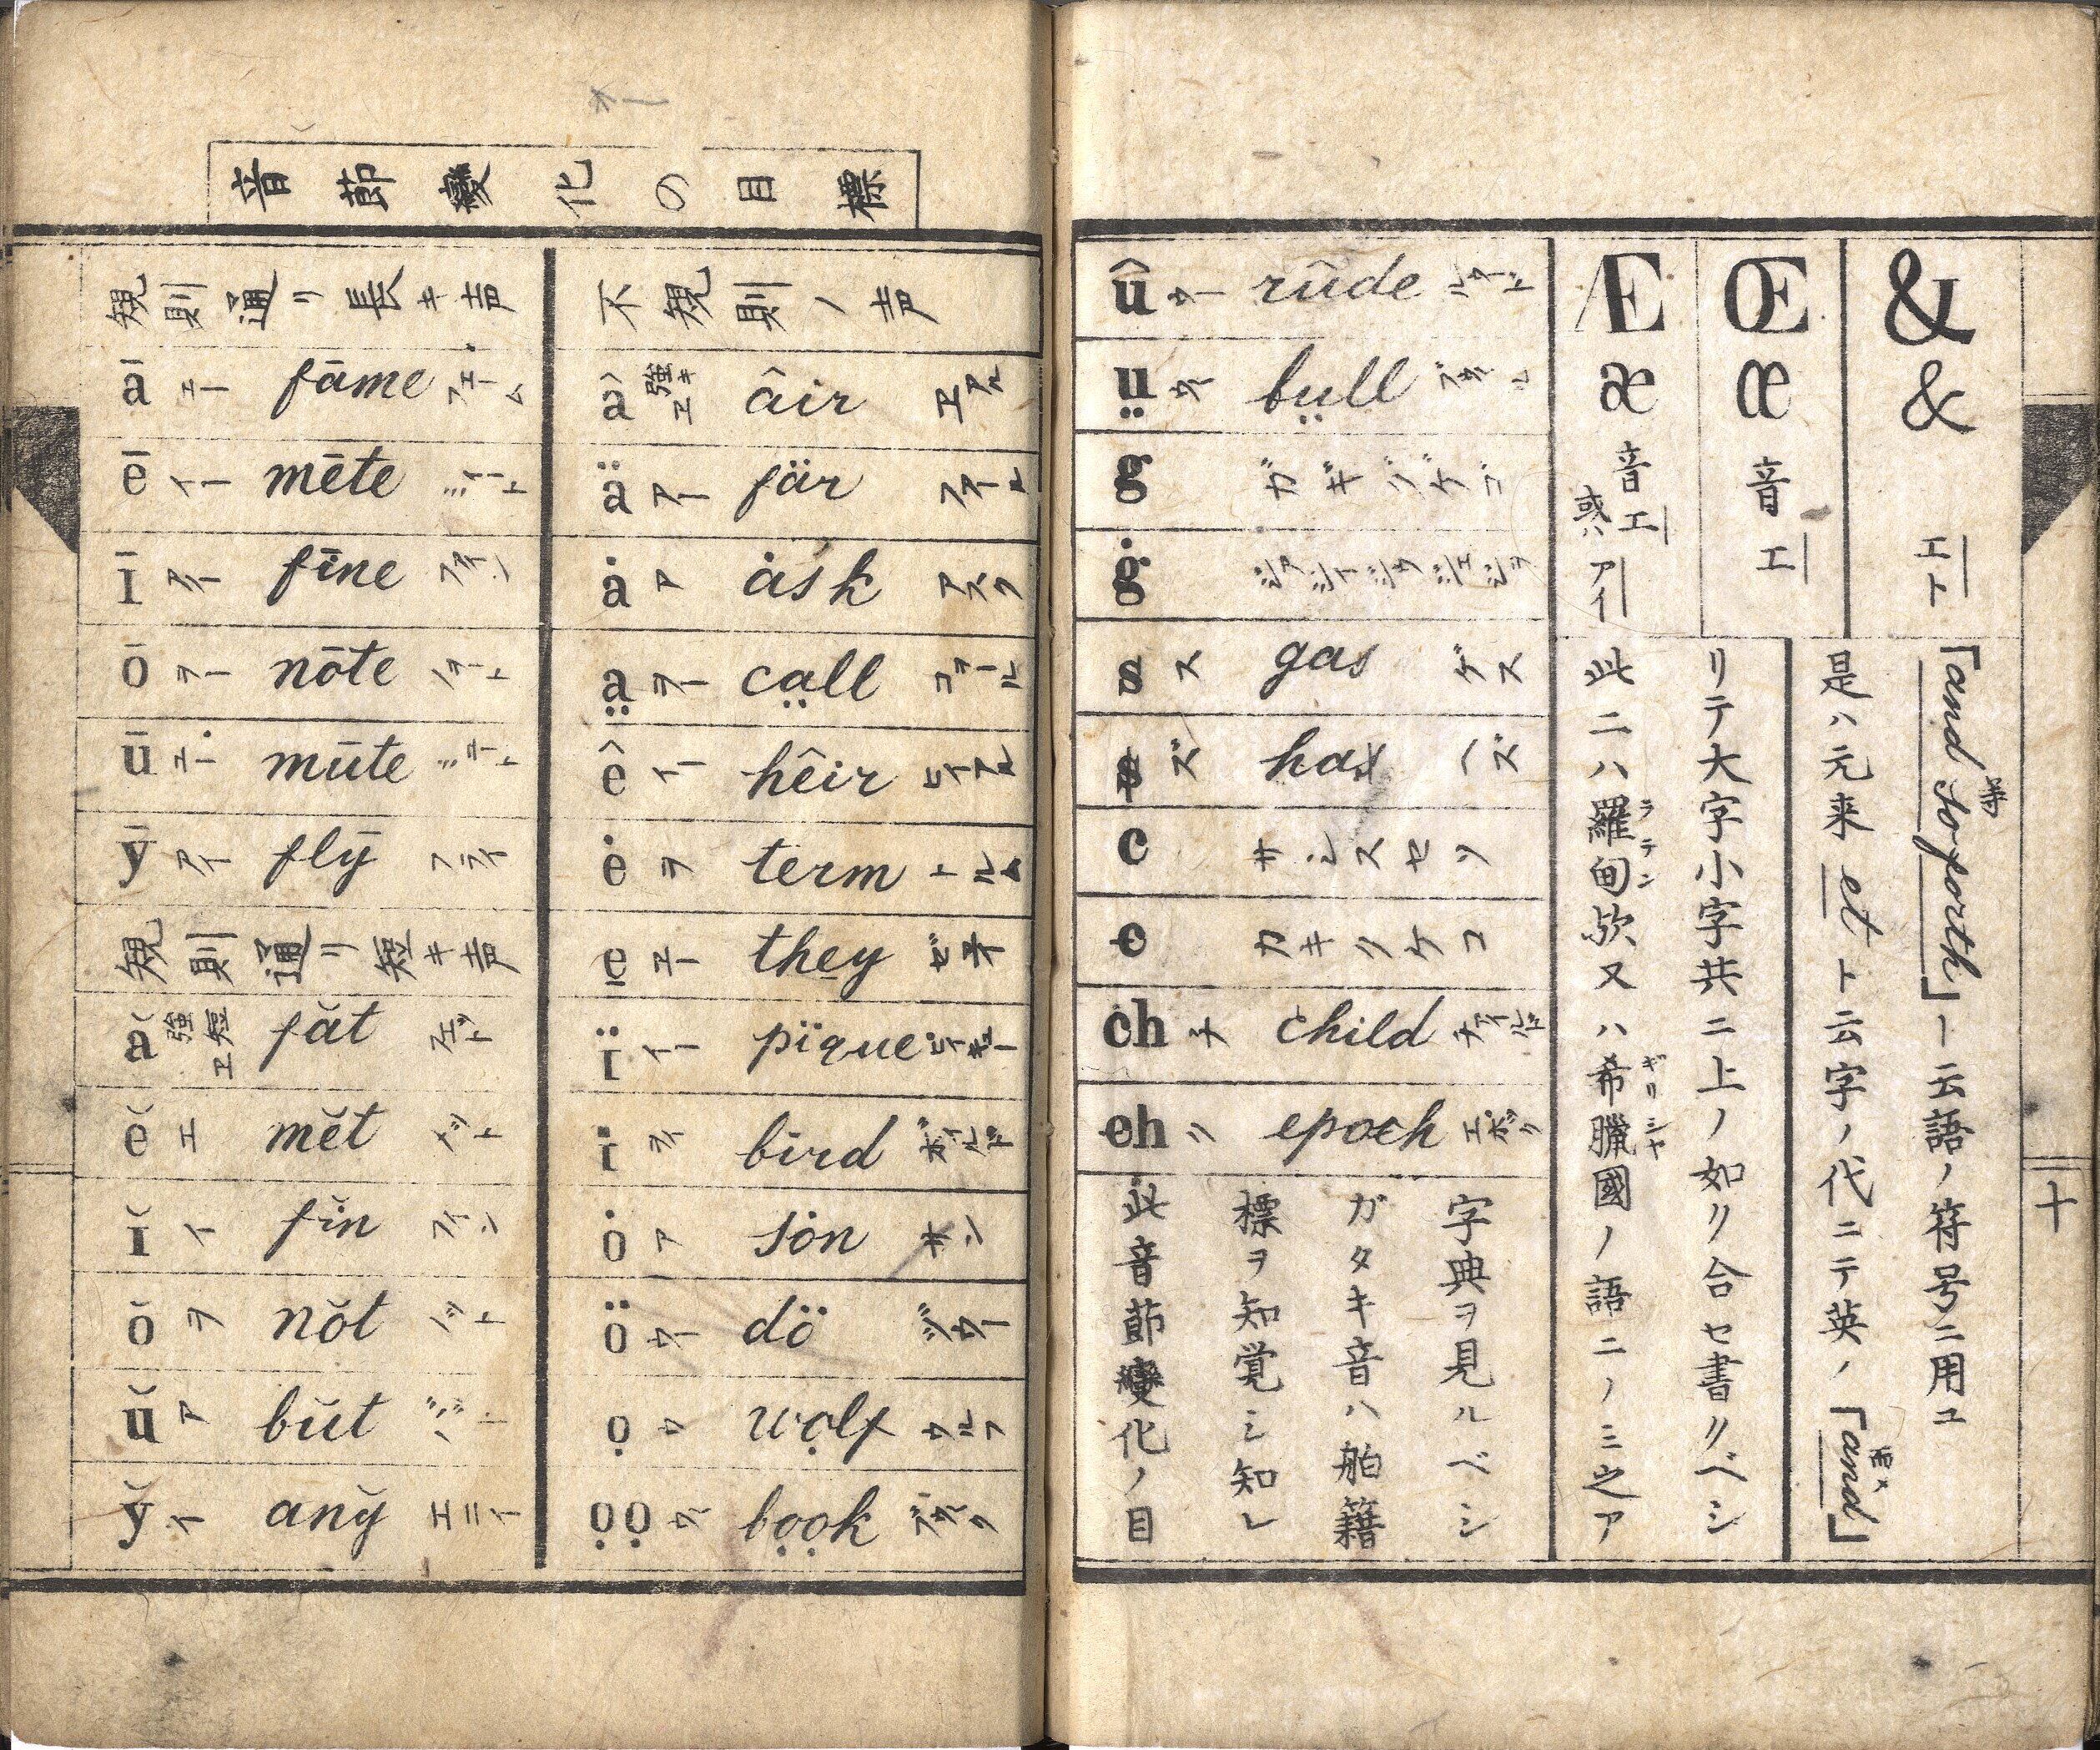 音節變化の目標
規則通リ長キ声
ā エー fāme フェーム
ē イー mēte ミート
ī アイ fīne ファイン
ō ヲー nōte ノート
ū ユー mūte ミュート
ȳ アイ flȳ フライ
規則通リ短キ声
ă 強短ヱ făt フェット
ĕ エ mĕt メット
ĭ イ fĭn フィン
ŏ ヲ nŏt ノット
ŭ ア bŭt バット
y̆ イ any̆ エニイ
不規則ノ声
â 強キヱ âir ヱアル
ä アー fär ファール
ȧ ア ȧsk アスク
a̤ ヲー ca̤ll コヲール
ê イー hêir ヒイアル
ė ヲ term トルム
e̱ エー the̱y ゼエイ
ï イー pïque ピイキュー
i ヲイ bird ボイルド
ȯ ア sȯn サン
ö ウー dö ヅウー
ọ ウ wọlf ウルフ
ọọ ウー bọọk ブウク
û ウー rûde ルウード
ṳ ウー bṳll ブウール
g ガギグゲゴ
ġ ジァジィジゥジェジヲ
s ス gas ゲス
s ズ has ハズ
c サシスセソ
c カキクケコ
ch チ child チァイルド
ch ク epoch エポック
此音節變化ノ目
標ヲ知覚シ知レ
ガタキ音ハ舶籍
字典ヲ見ルベシ
& & エト
「and so forth」ト云語ノ符号ニ用ユ
是ハ元来 et ト云字ノ代ニテ英ノ「and」
Œ œ 音エ
Æ æ 音エ 或ハアイ
此二ハ羅甸欤又ハ希臘國ノ語ニノミ之ア
リテ大字小字共ニ上ノ如ク合セ書クベシ
ラテン
ギリシヤ
十